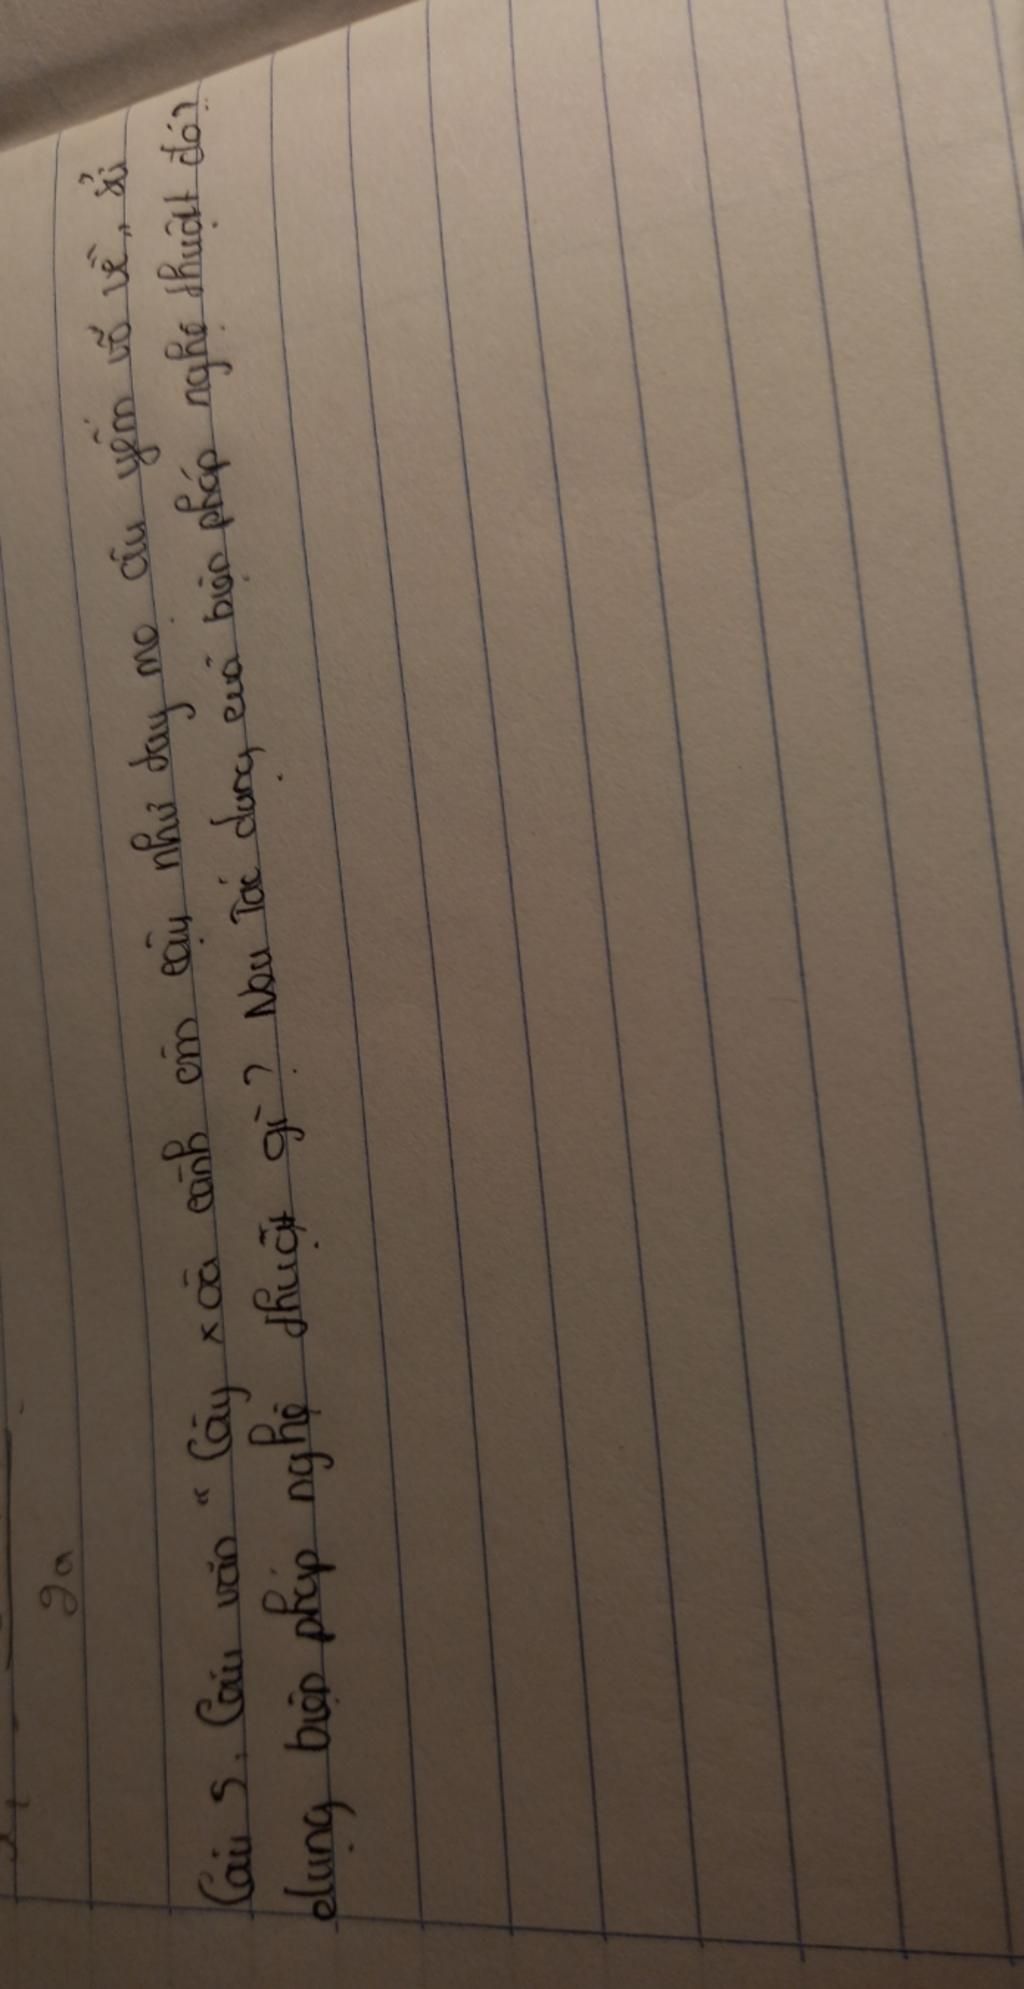 ga
Câu 5. Câu văn " Cây xoà cành ôm cậy như tay mẹ âu yếm vỗ về, sử
dụng biện pháp nghệ thuật gì? Nêu Tác dụng của biện pháp nghệ thuật đó?